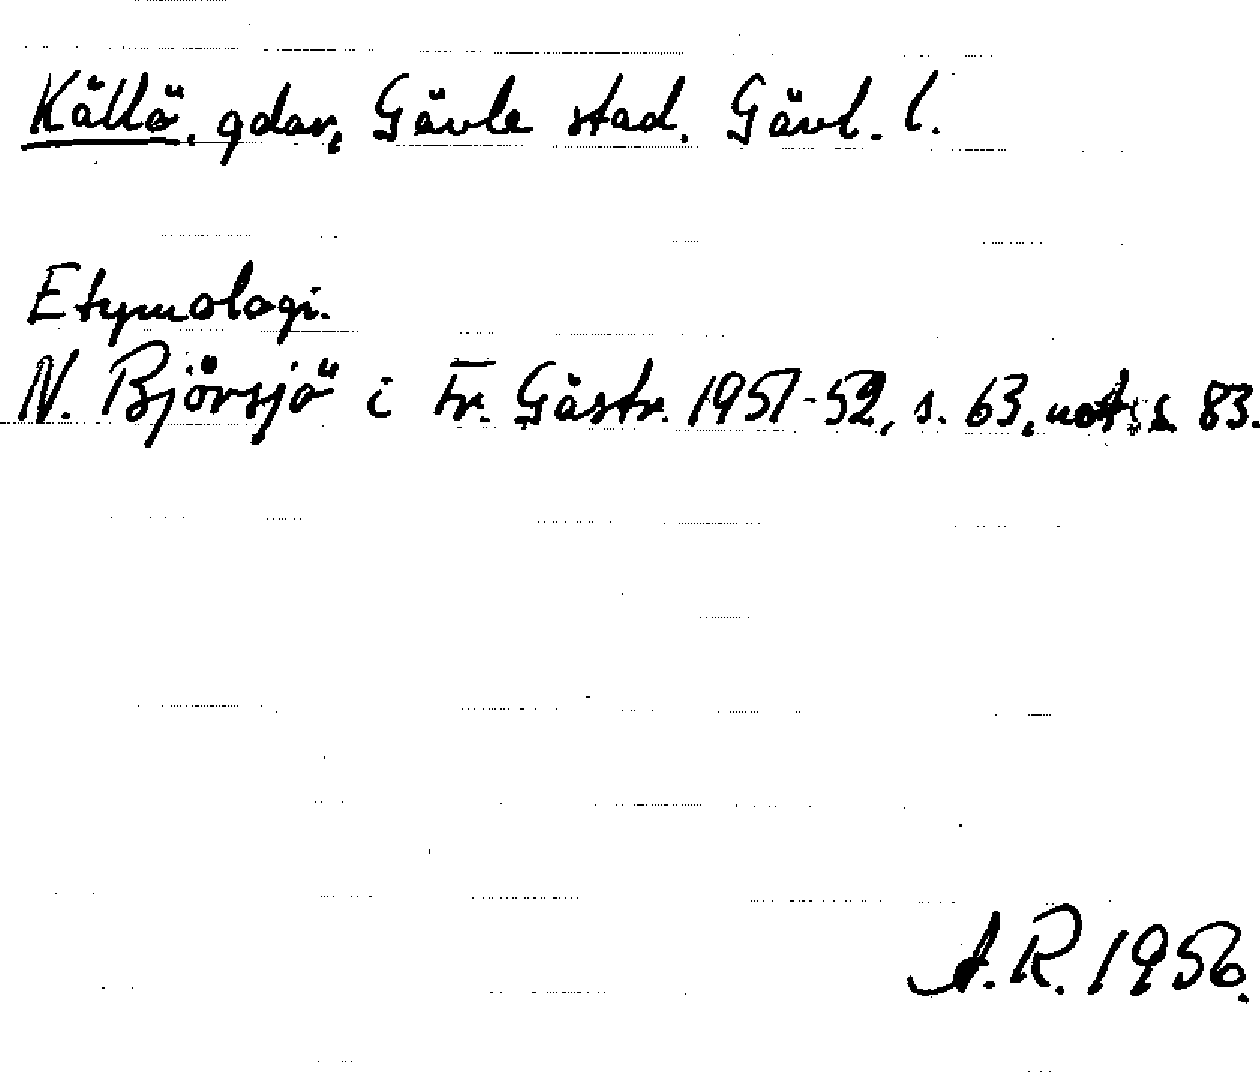 Källö, gdar, Gävle stad. Gävl. l.
Etymologi.
N. Björsjö i Fr. Gästr. 1951-52, s. 63, not s. 83.
A.R. 1956.